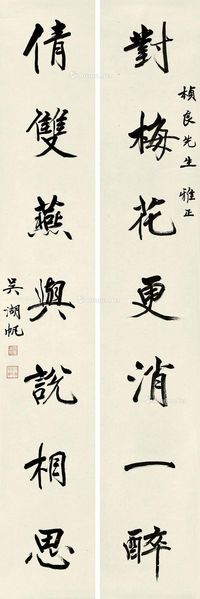 對梅花更消一醉
楨良先生雅正
倩雙燕與說相思
吳湖帆